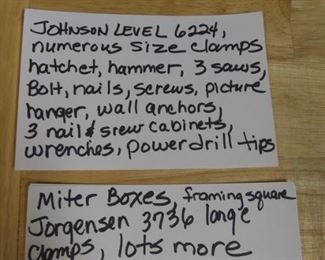 JOHNSON LEVEL 6224,
numerous Size Clamps
hatchet, hammer, 3 saws,
Bolt, nails, screws, picture
hanger, wall anchors,
3 nail & srew cabinets,
wrenches, power drill tips
Miter Boxes, framing square
Jorgensen 3736 large
Clamps, lots more